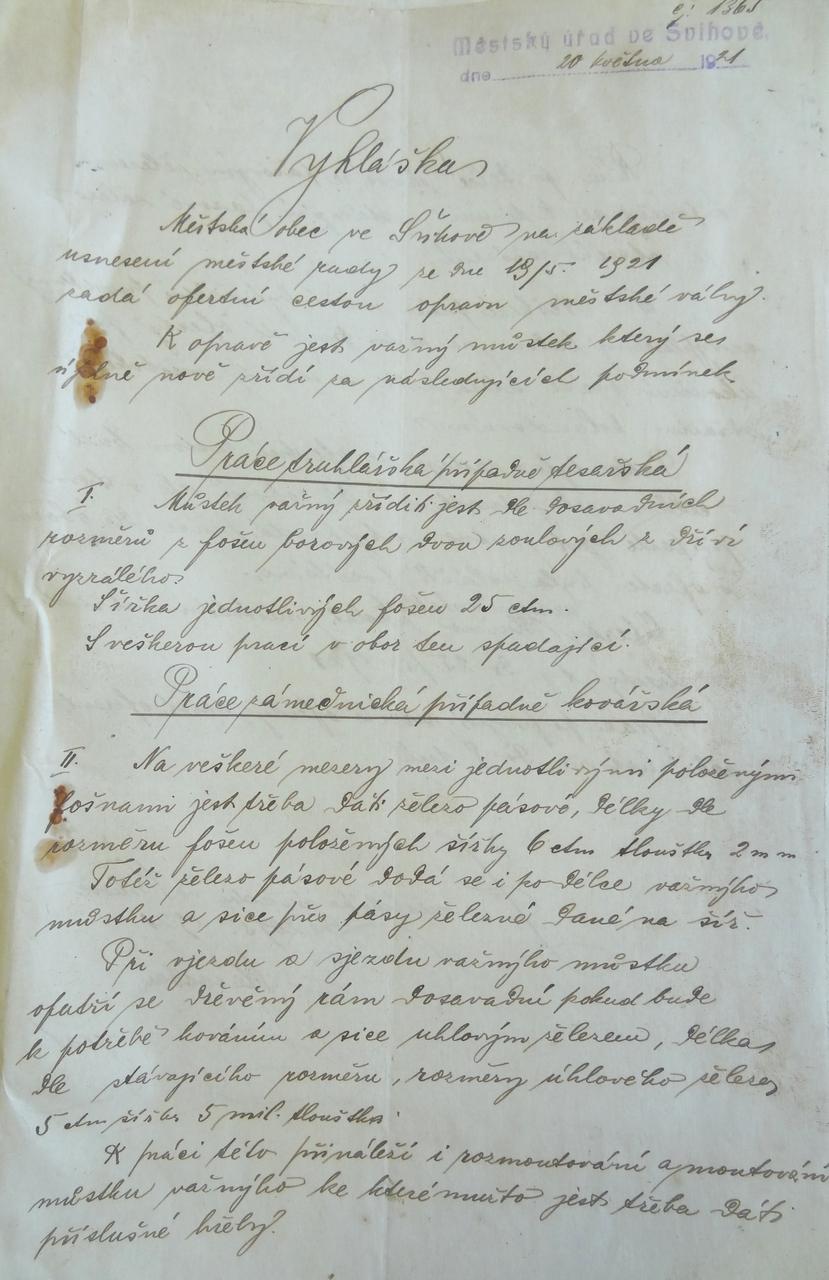 čj: 1365
Městský úřad ve Švihově.
dne 20 května 1921
Vyhláška
Městská obec ve Švihově na základě
usnesení městské rady ze dne 19/5. 1921
zadá ofertní cestou opravu městské váhy.
K opravě jest važný můstek který se
úplně nově zřídí za následujících podmínek.
Práce truhlářská případně tesařská
I. Můstek važný zříditi jest dle dosavadních
rozměrů z fošen borových dvou coulových z dříví
vyzrálého.
Šířka jednotlivých fošen 25 ctm.
S veškerou prací v obor ten spadající.
Práce zámečnická případně kovářská
II. Na veškeré mezery mezi jednotlivými položenými
fošnami jest třeba dáti železo pásové, délky dle
rozměru fošen položených šířky 6 ctm tloušťka 2 mm
Totéž železo pásové dodá se i po délce važného
můstku a sice přes pásy železné dané na šíř.
Při vjezdu a sjezdu važného můstku
opatří se dřevěný rám dosavadní pokud bude
k potřebě kováním a sice uhlovým železem, délka
dle stávajícího rozměru, rozměry úhlového železa
5 ctm šířka 5 mil. tloušťka.
K práci této přináleží i rozmontování a montování
můstku važného ke kterémužto jest třeba dáti
příslušné hřeby.